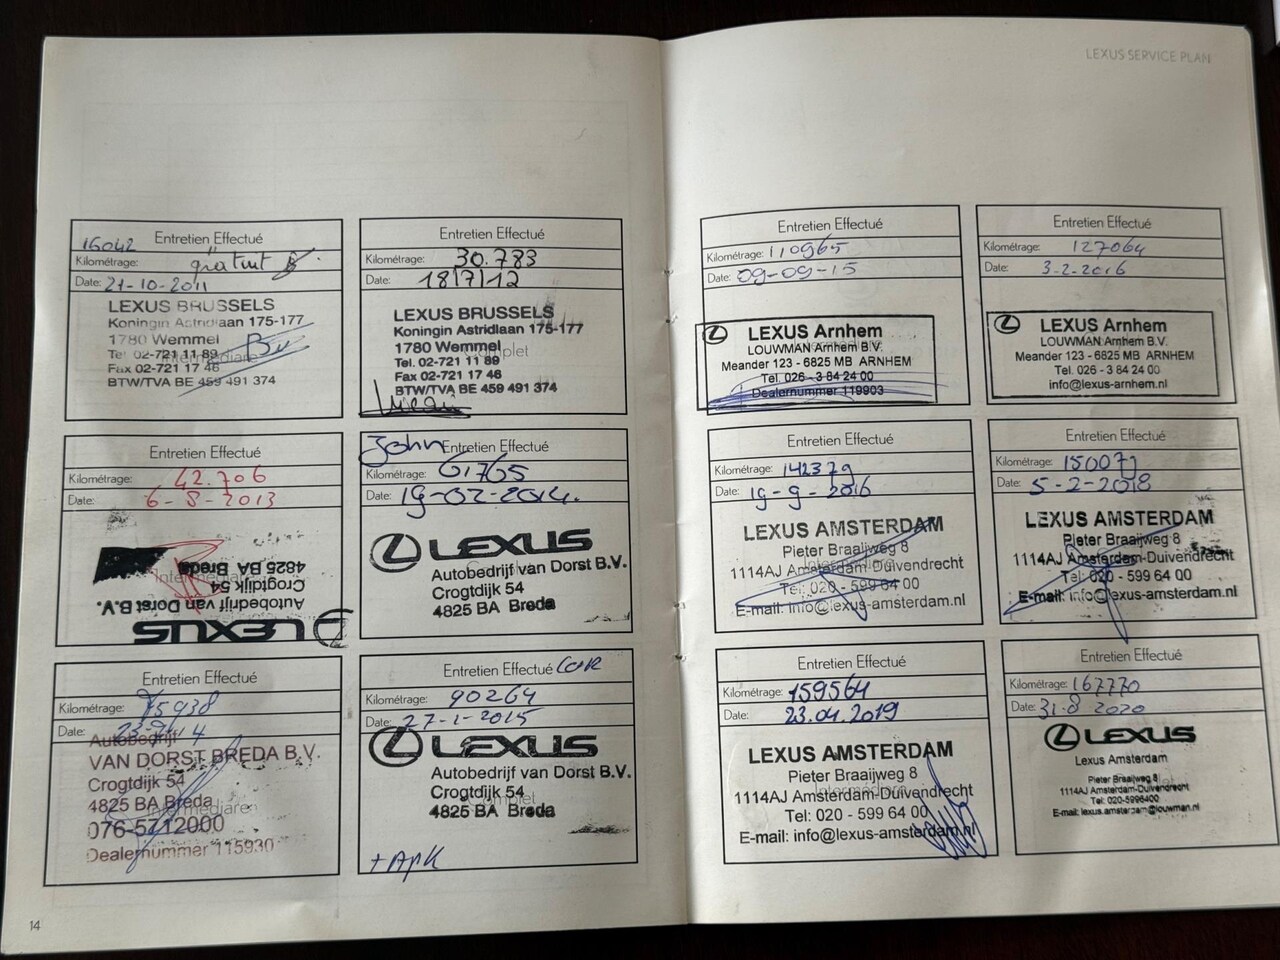 LEXUS SERVICE PLAN
16042 Entretien Effectué
Kilométrage: gratuit
Date: 21-10-2011
LEXUS BRUSSELS
Koningin Astridlaan 175-177
1780 Wemmel
Tel 02-721 11 89
Fax 02-721 17 46
BTW/TVA BE 459 491 374
Entretien Effectué
Kilométrage: 30.783
Date: 18/7/12
LEXUS BRUSSELS
Koningin Astridlaan 175-177
1780 Wemmel
Tel. 02-721 11 89
Fax 02-721 17 46
BTW/TVA BE 459 491 374
Entretien Effectué
Kilométrage: 42.706
Date: 6-8-2013
LEXUS
Autobedrijf van Dorst B.V.
Crogtdijk 54
4825 BA Breda
John Entretien Effectué
Kilométrage: 61765
Date: 19-02-2014.
LEXUS
Autobedrijf van Dorst B.V.
Crogtdijk 54
4825 BA Breda
Entretien Effectué
Kilométrage: 75938
Date:
Autobedrijf
VAN DORST BREDA B.V.
Crogtdijk 54
4825 BA Breda
Intermédiaire
076-5712000
Dealernummer 115930
Entretien Effectué
Kilométrage: 90264
Date: 27-1-2015
LEXUS
Autobedrijf van Dorst B.V.
Crogtdijk 54
Complet
4825 BA Breda
+ APK
14
Entretien Effectué
Kilométrage: 110965
Date: 09-09-15
LEXUS Arnhem
LOUWMAN Arnhem B.V.
Meander 123 - 6825 MB ARNHEM
Tel. 026 - 3 84 24 00
Dealernummer 119903
Entretien Effectué
Kilométrage: 127064
Date: 3-2-2016
LEXUS Arnhem
LOUWMAN Arnhem B.V.
Meander 123 - 6825 MB ARNHEM
Tel. 026 - 3 84 24 00
info@lexus-arnhem.nl
Entretien Effectué
Kilométrage: 142379
Date: 19-9-2016
LEXUS AMSTERDAM
Pieter Braaijweg 8
1114AJ Amsterdam-Duivendrecht
Tel: 020 - 599 64 00
E-mail: info@lexus-amsterdam.nl
Entretien Effectué
Kilométrage: 150071
Date: 5-2-2018
LEXUS AMSTERDAM
Pieter Braaijweg 8
1114AJ Amsterdam-Duivendrecht
Tel: 020 - 599 64 00
E-mail: info@lexus-amsterdam.nl
Entretien Effectué
Kilométrage: 159564
Date: 23.04.2019
LEXUS AMSTERDAM
Pieter Braaijweg 8
1114AJ Amsterdam-Duivendrecht
Tel: 020 - 599 64 00
E-mail: info@lexus-amsterdam.nl
Entretien Effectué
Kilométrage: 167770
Date: 31-8-2020
LEXUS
Lexus Amsterdam
Pieter Braaijweg 8
1114AJ Amsterdam-Duivendrecht
Tel: 020-5996400
E-mail: lexus.amsterdam@louwman.nl